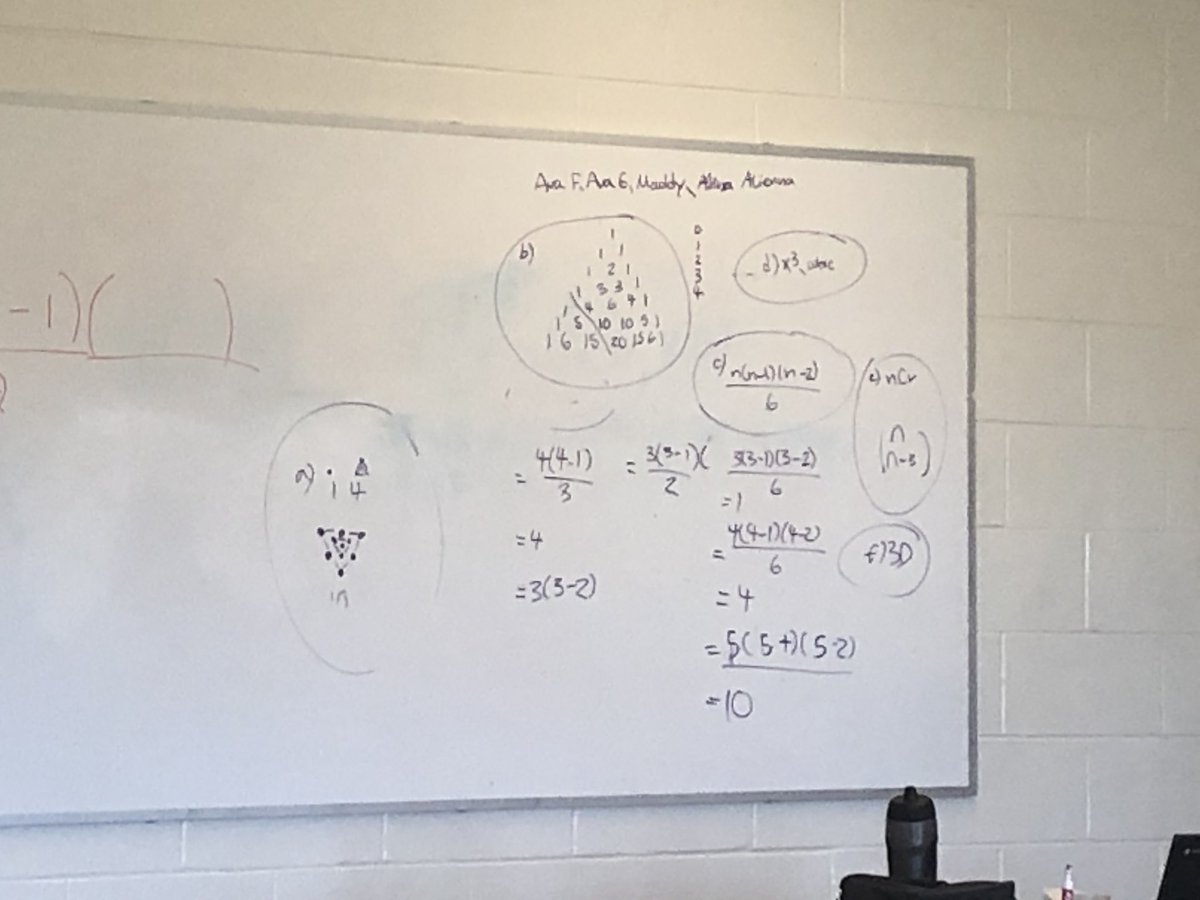 Ava F, Ava G, Maddy, Alienna
-1)( )
b)
1
1 1
1 2 1
1 3 3 1
1 4 6 4 1
1 5 10 10 5 1
1 6 15 20 15 6 1
0
1
2
3
4
d) x³, cubic
c) n(n-1)(n-2)
6
e) nCr
(n
n-3)
a)
1 4
10
= 4(4-1)
3
= 4
= 3(3-2)
= 3(3-1)(
2
3(3-1)(3-2)
6
= 1
= 4(4-1)(4-2)
6
= 4
= 5(5-1)(5-2)
= 10
f) 3D